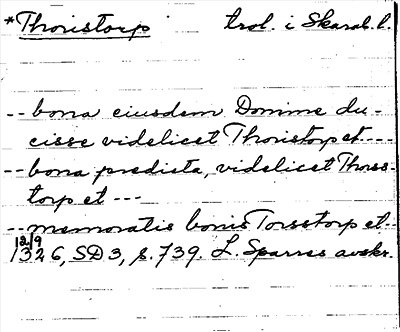 *Thoristorp trol. i Skarab. l.
-- bona eiusdem Domine du-
cisse videlicet Thoristorp et ---
-- bona predicta, videlicet Thorss-
torp et ---
-- memoratis bonis Torsstorp et --
12/9
1326, SD 3, s. 739. L. Sparres avskr.